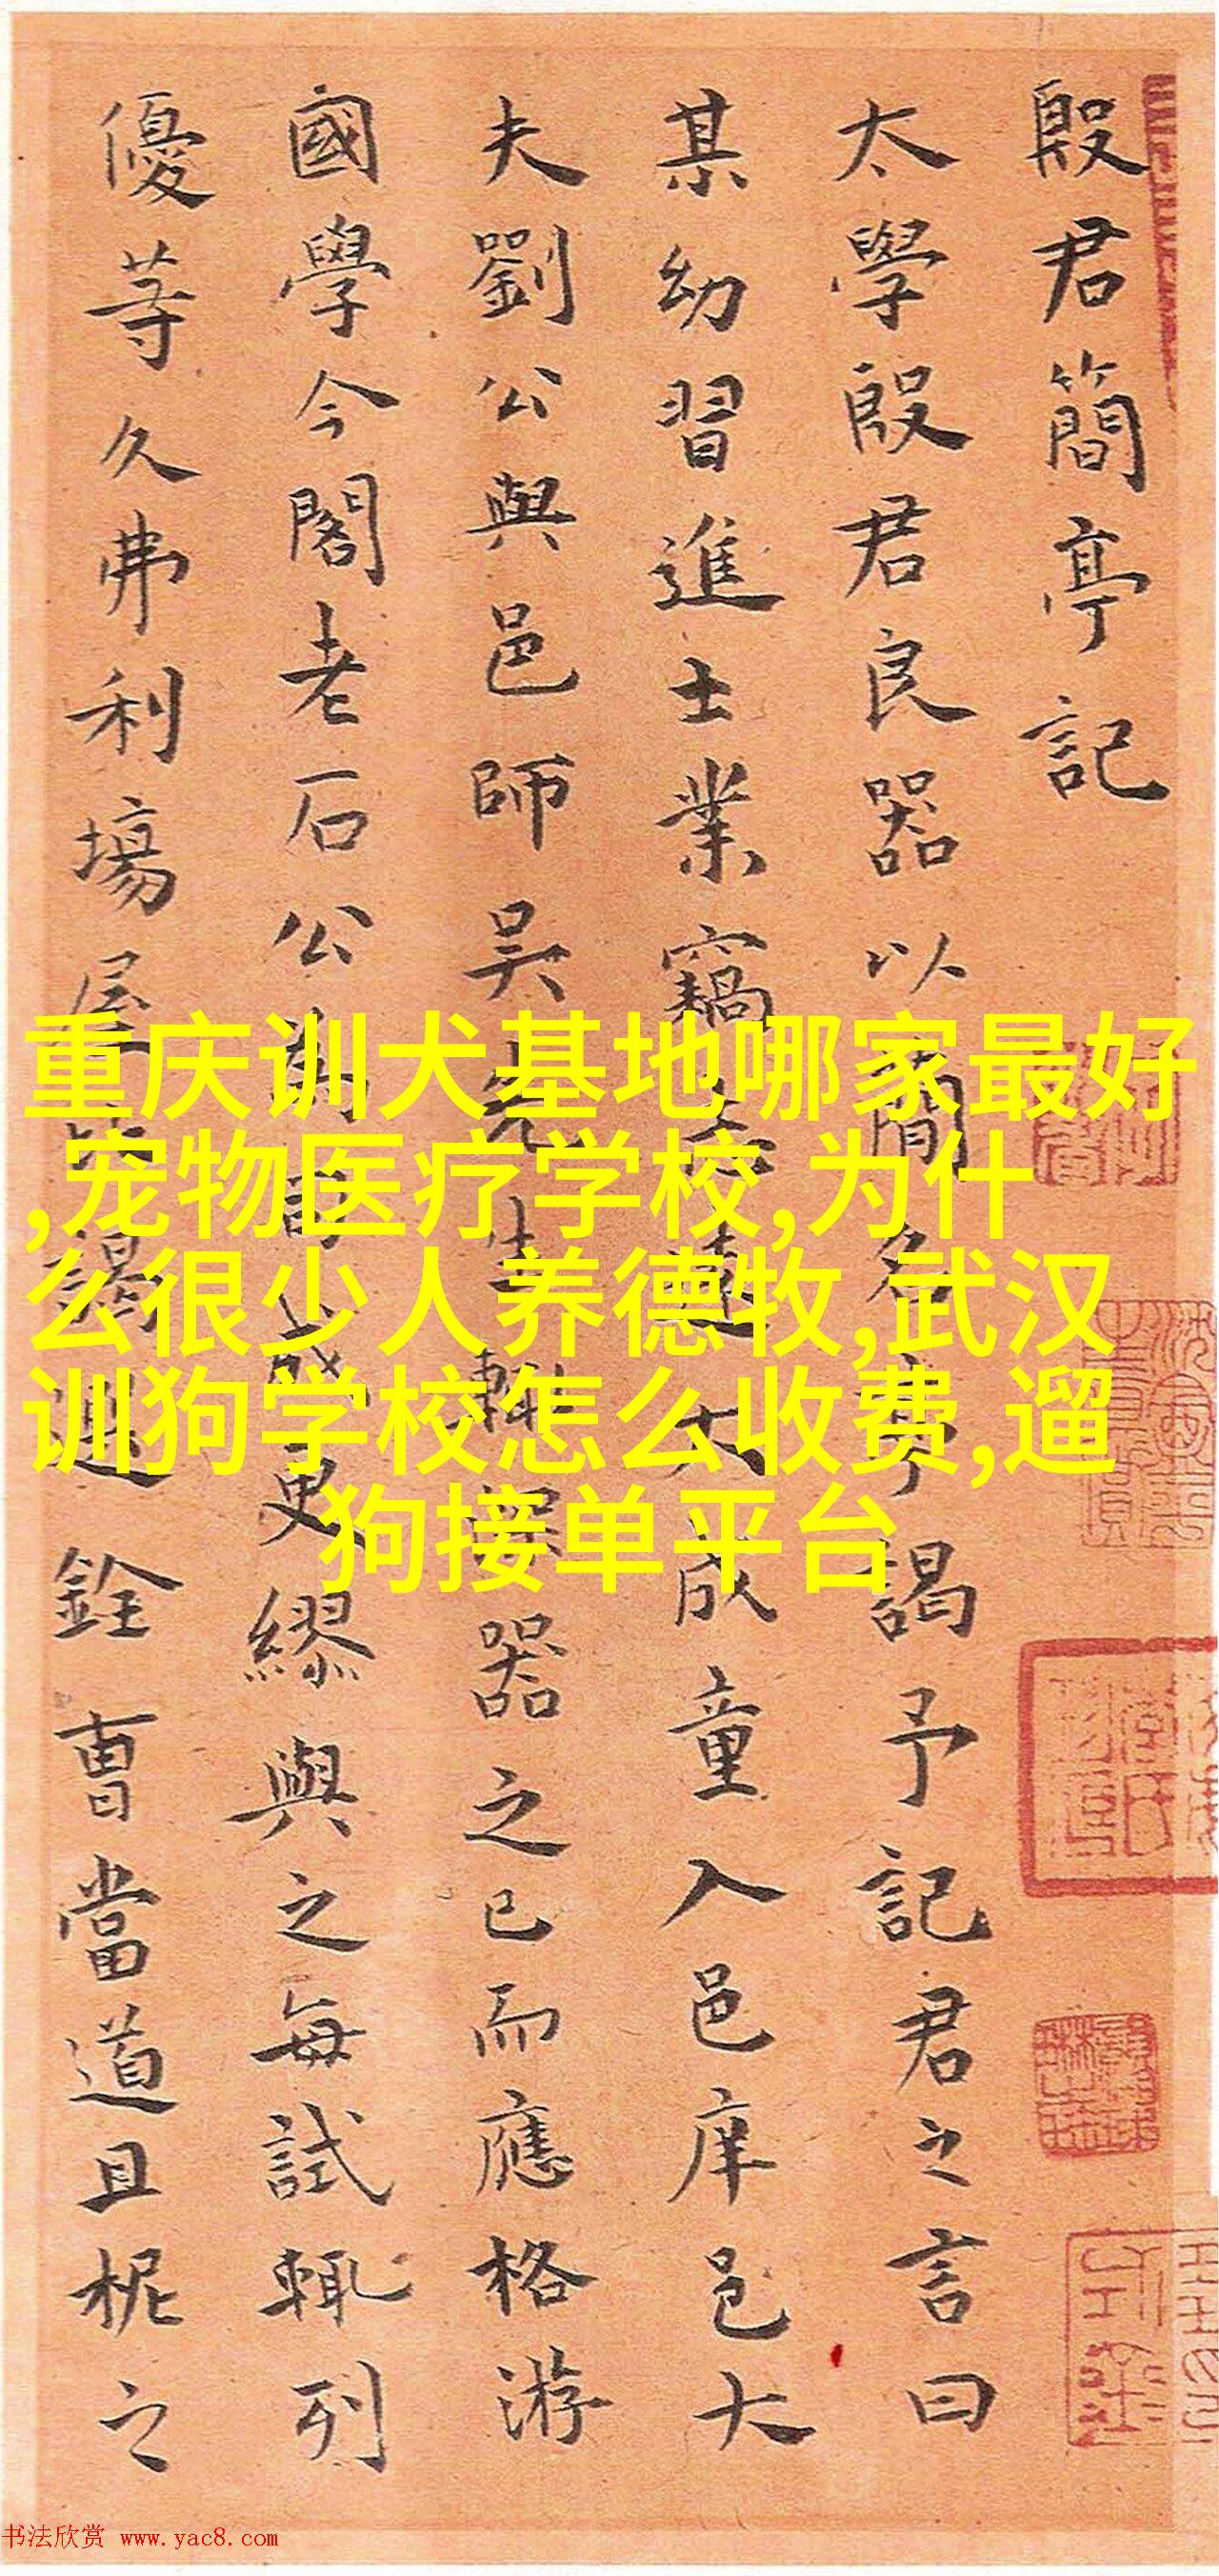 殷君簡亭記
太學殷君良器以簡名亭謁予記君之言曰
某幼習進士業竊志遠大成童入邑庠邑大
夫劉公與邑師吳先生輒深器之已而應格游
國學今閣老石公為司成更繆與之每試輒列
優等久弗利場屋比謁選銓曹當道且柅之
重庆训犬基地哪家最好
,宠物医疗学校,为什
么很少人养德牧,武汉
训狗学校怎么收费,遛
狗接单平台
书法欣赏 www.yac8.com